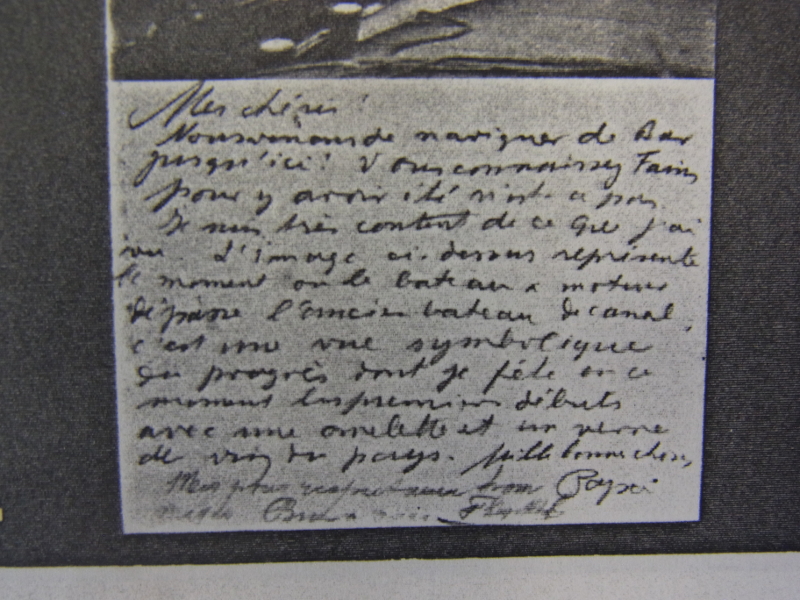 Mes chéris!
Nous venons de naviguer de Bar
jusqu'ici! Vous connaissez
pour y avoir été n'est ce pas.
Je suis très content de ce que j'ai
vu. L'image ci-dessus représente
le moment ou le bateau a moteur
dépasse l'ancien bateau de canal,
c'est une vue symbolique
du progrès dont je fête en ce
moment les premiers débuts
avec une omelette et un verre
de vin du pays. Mille bonnes choses
Papi